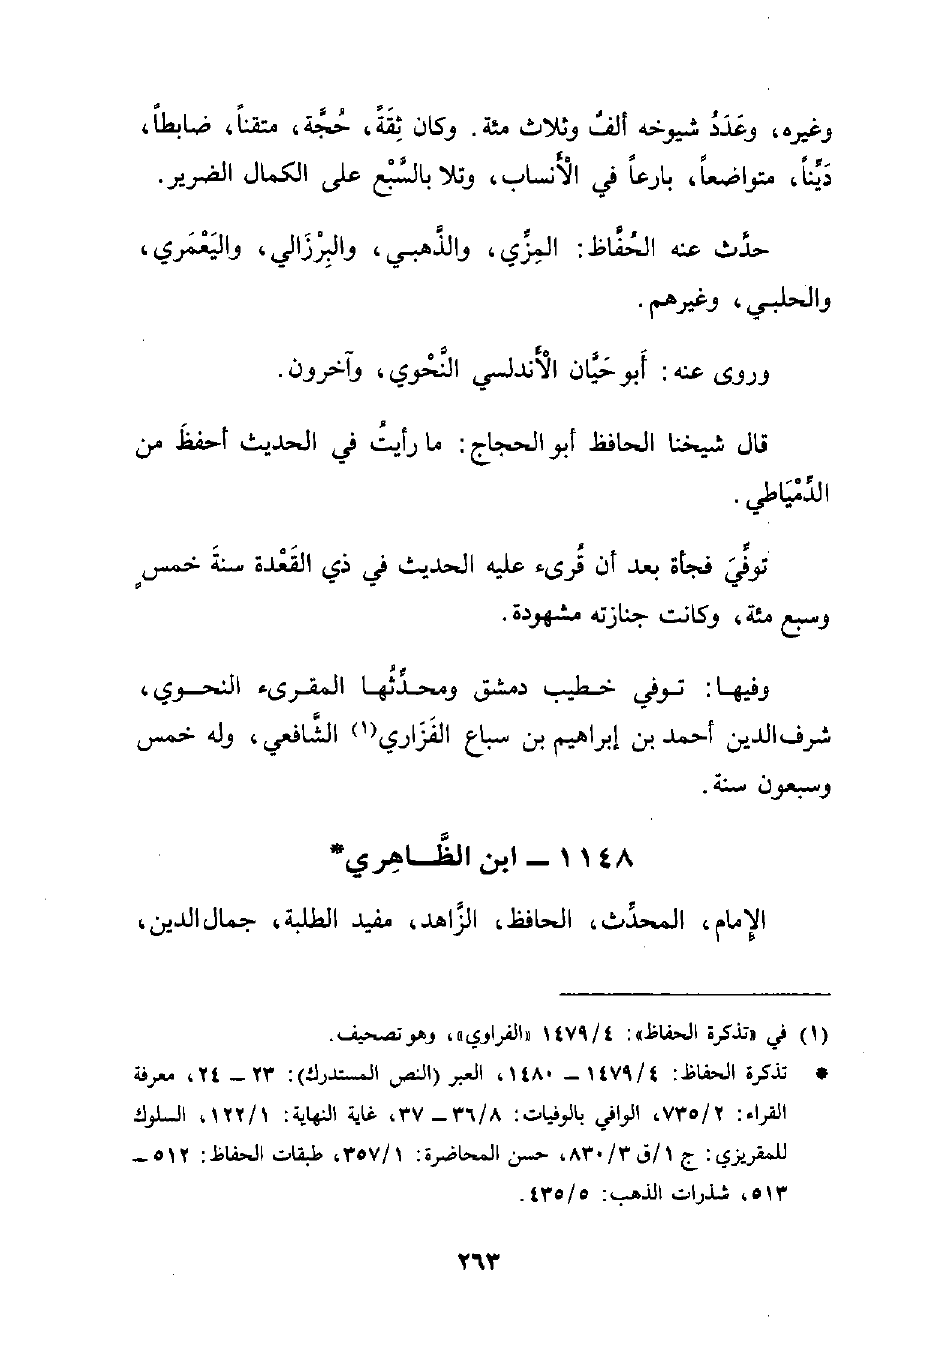 وغيره، وعَدَدُ شيوخه ألفٌ وثلاث مئة. وكان ثِقَةً، حُجَّة، متقناً، ضابطاً،
دَيِّناً، متواضعاً، بارعاً في الْأنساب، وتلا بالسَّبْع على الكمال الضرير.
حدَّث عنه الحُفَّاظ: المِزِّي، والذَّهبي، والبِرْزَالي، واليَعْمَري،
والحلبي، وغيرهم.
وروى عنه: أَبو حَيَّان الْأندلسي النَّحْوي، وآخرون.
قال شيخنا الحافظ أبو الحجاج: ما رأيتُ في الحديث أحفظَ من
الدِّمْيَاطي.
توفِّيَ فجأة بعد أن قُرىء عليه الحديث في ذي القَعْدة سنةَ خمسٍ
وسبع مئة، وكانت جنازته مشهودة.
وفيها: توفي خطيب دمشق ومحدِّثُها المقرىء النحوي،
شرف الدين أحمد بن إبراهيم بن سباع الفَزَاري(١) الشَّافعي، وله خمس
وسبعون سنة.
١١٤٨ – ابن الظَّاهِري*
الإمام، المحدِّث، الحافظ، الزَّاهد، مفيد الطلبة، جمال الدين،
(١) في «تذكرة الحفاظ»: ١٤٧٩/٤ «الفراوي»، وهو تصحيف.
* تذكرة الحفاظ: ١٤٧٩/٤ – ١٤٨٠، العبر (النص المستدرك): ٢٣ – ٢٤، معرفة
القراء: ٧٣٥/٢، الوافي بالوفيات: ٣٦/٨ – ٣٧، غاية النهاية: ١٢٢/١، السلوك
للمقريزي: ج ١/ق ٨٣٠/٣، حسن المحاضرة: ٣٥٧/١، طبقات الحفاظ: ٥١٢ –
٥١٣، شذرات الذهب: ٤٣٥/٥.
٢٦٣